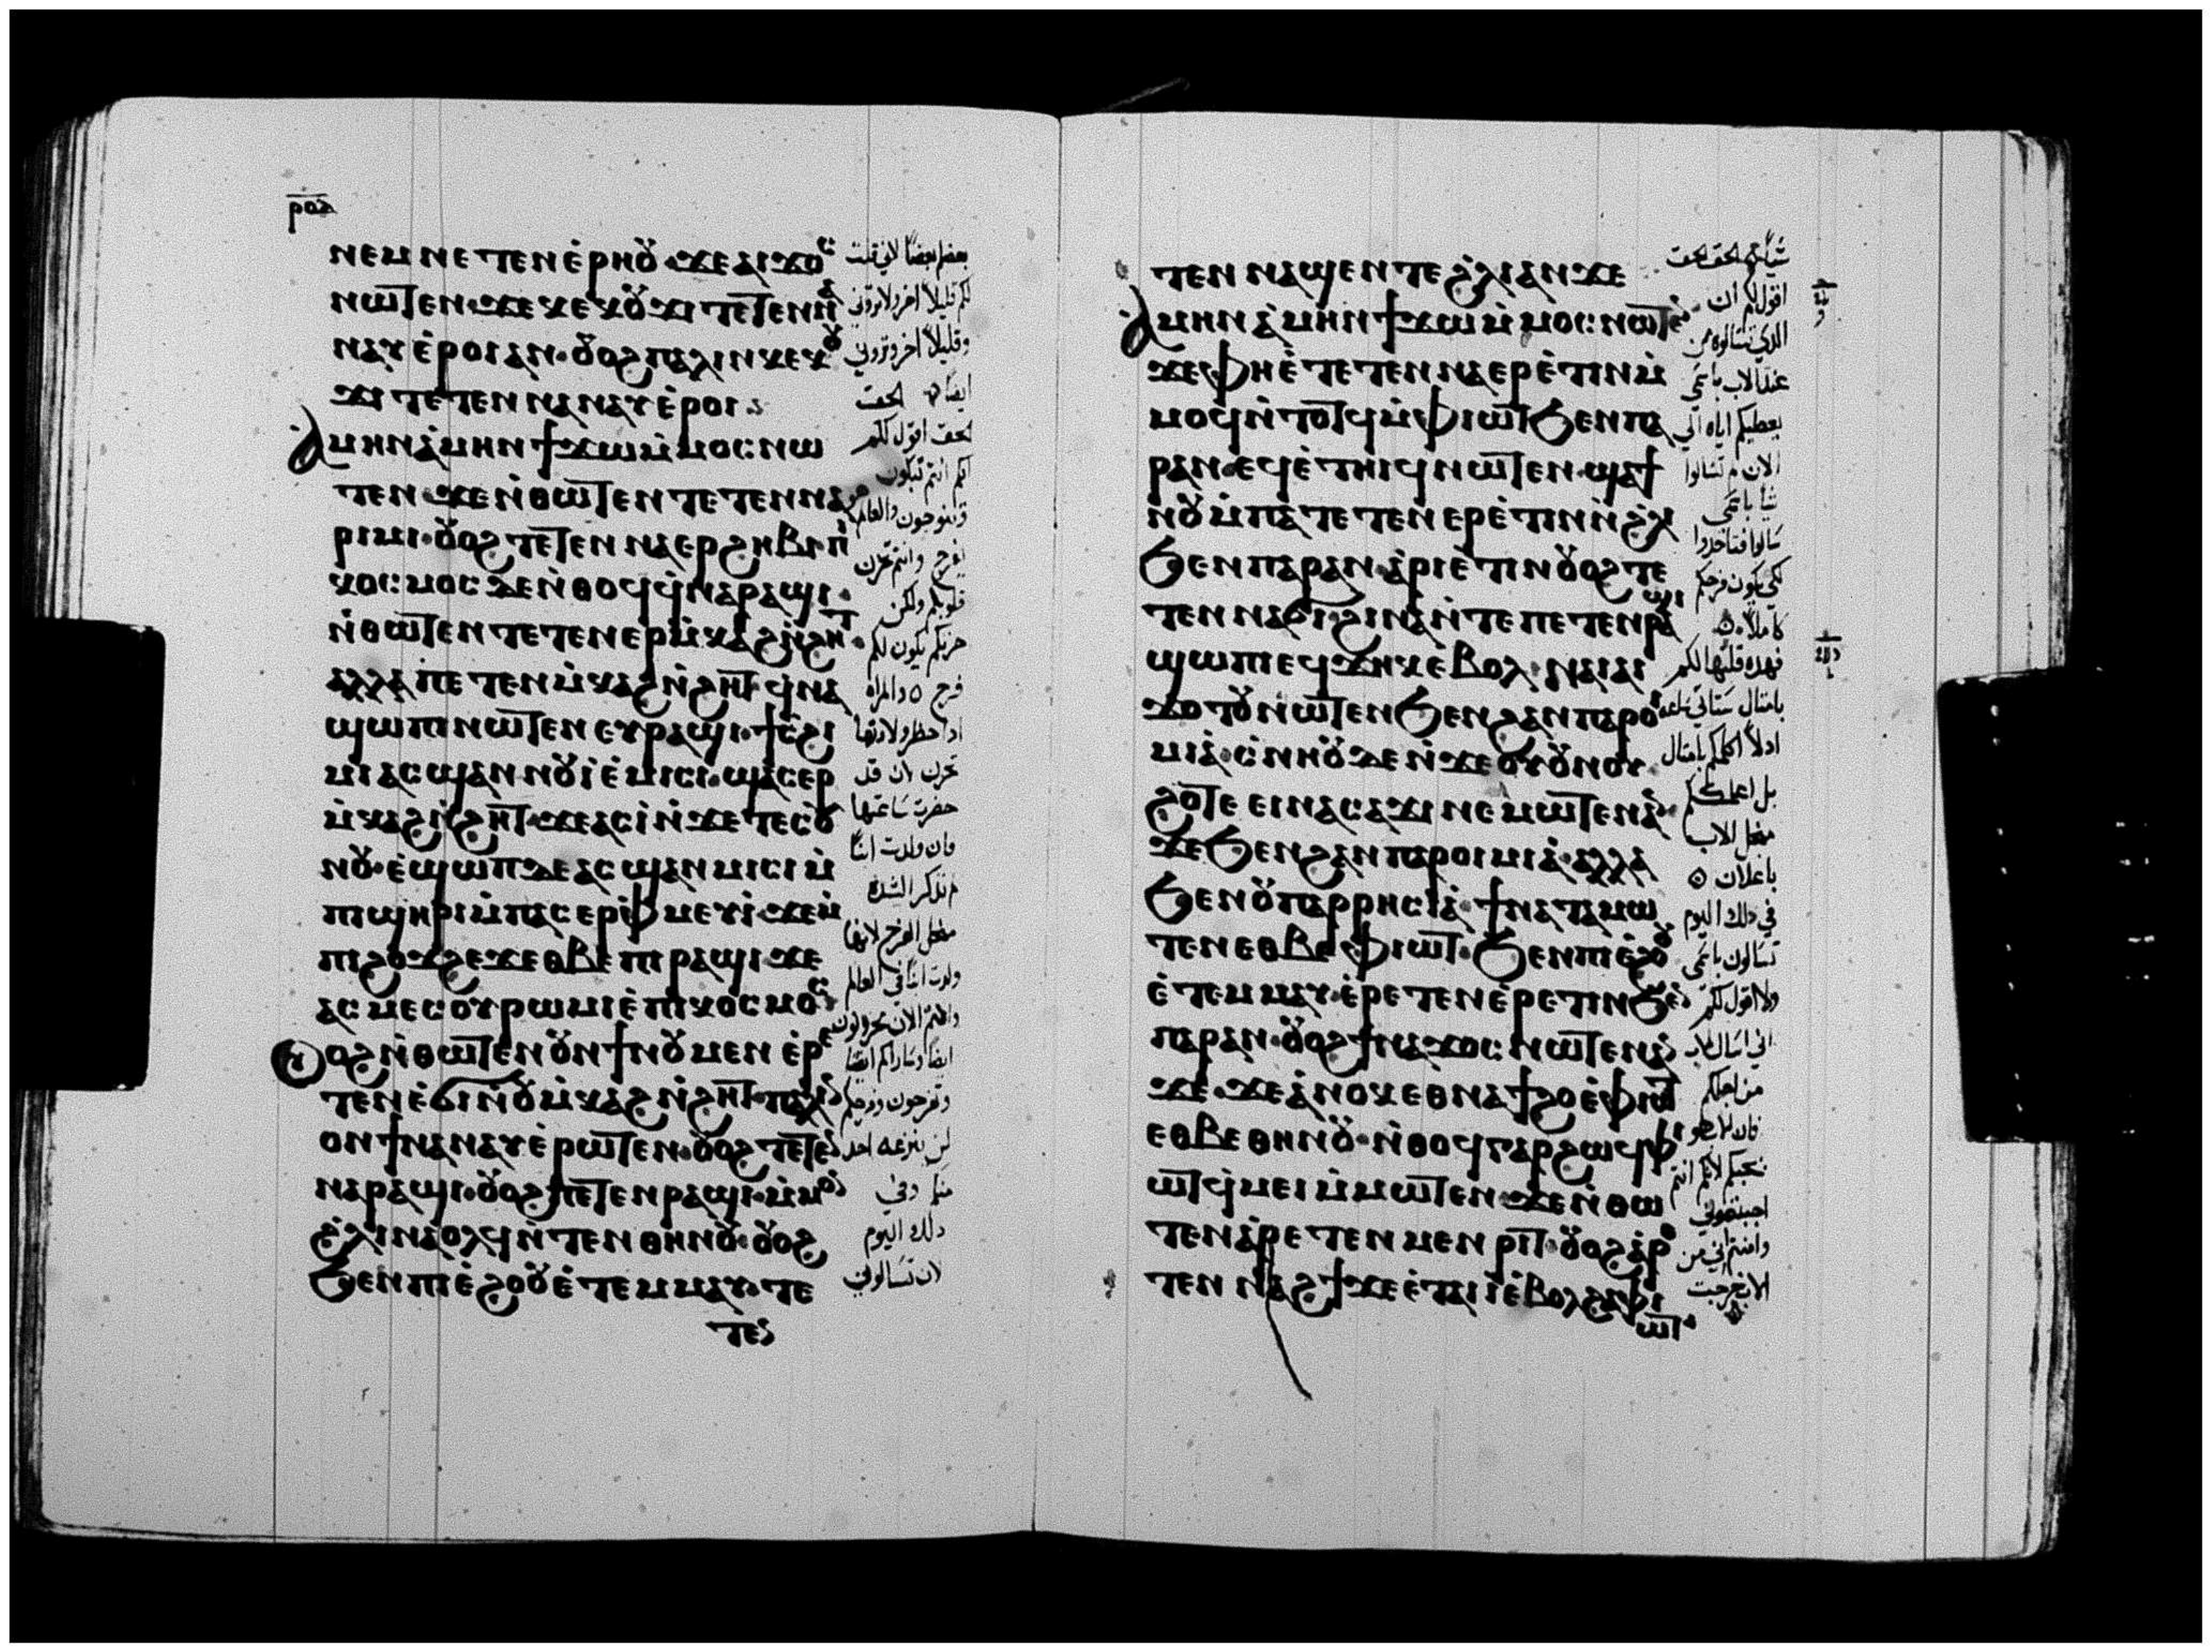 ⲣⲟⲇ
ⲛⲉⲙ ⲛⲉⲧⲉⲛⲉ̀ⲣⲏⲟⲩ ϫⲉ ⲁⲓϫⲟⲥ
ⲛⲱⲧⲉⲛ ϫⲉ ⲕⲉⲕⲟⲩϫⲓ ⲧⲉⲧⲉⲛⲛⲁ
ⲛⲁⲩ ⲉ̀ⲣⲟⲓ ⲁⲛ· ⲟⲩⲟϩ ⲡⲁⲗⲓⲛ ⲕⲉⲕⲟⲩ
ϫⲓ ⲧⲉⲧⲉⲛⲛⲁⲛⲁⲩ ⲉ̀ⲣⲟⲓ
ⲁⲙⲏⲛ ⲁ̀ⲙⲏⲛ ϯϫⲱ ⲙ̀ⲙⲟⲥ ⲛⲱ
ⲧⲉⲛ ϫⲉ ⲛ̀ⲑⲱⲧⲉⲛ ⲧⲉⲧⲉⲛⲛⲁ
ⲣⲓⲙⲓ· ⲟⲩⲟϩ ⲧⲉⲧⲉⲛⲛⲁⲉⲣϩⲏⲃⲓ ⲡⲓ
ⲕⲟⲥⲙⲟⲥ ⲇⲉ ⲛ̀ⲑⲟϥ ϥ̀ⲛⲁⲣⲁϣⲓ·
ⲛ̀ⲑⲱⲧⲉⲛ ⲧⲉⲧⲉⲛⲉⲣⲙ̀ⲕⲁϩ ⲛ̀ϩⲏⲧ·
ⲁⲗⲗⲁ ⲡⲉⲧⲉⲛⲙ̀ⲕⲁϩ ⲛ̀ϩⲏⲧ ϥ̀ⲛⲁ
ϣⲱⲡⲓ ⲛⲱⲧⲉⲛ ⲉⲩⲣⲁϣⲓ· ϯⲥ̀ϩⲓ
ⲙⲓ ⲁⲥϣⲁⲛⲛⲟⲩⲓ̀ ⲉ̀ⲙⲓⲥⲓ· ϣⲁⲥⲉⲣ
ⲙ̀ⲕⲁϩ ⲛ̀ϩⲏⲧ· ϫⲉ ⲁⲥⲓ̀ ⲛ̀ϫⲉ ⲧⲉⲥⲟⲩ
ⲛⲟⲩ· ⲉ̀ϣⲱⲡ ⲇⲉ ⲁⲥϣⲁⲛⲙⲓⲥⲓ ⲙ̀
ⲡⲓϣⲏⲣⲓ ⲙ̀ⲡⲁⲥⲉⲣⲫ̀ⲙⲉⲩⲓ̀ ϫⲉ ⲙ̀
ⲡⲓϩⲟϫϩⲉϫ ⲉⲑⲃⲉ ⲡⲓⲣⲁϣⲓ ϫⲉ
ⲁⲥⲙⲉⲥ ⲟⲩⲣⲱⲙⲓ ⲉ̀ⲡⲓⲕⲟⲥⲙⲟⲥ
ⲟⲩⲟϩ ⲛ̀ⲑⲱⲧⲉⲛ ⲟⲩⲛ ϯⲛⲟⲩ ⲙⲉⲛ ⲉ̀ⲣⲉ
ⲧⲉⲛⲉ̀ϭⲓ ⲛ̀ⲟⲩⲙ̀ⲕⲁϩ ⲛ̀ϩⲏⲧ· ⲡⲁⲗⲓⲛ
ⲟⲛ ϯⲛⲁⲛⲁⲩ ⲉ̀ⲣⲱⲧⲉⲛ· ⲟⲩⲟϩ ⲧⲉⲧⲉⲛ
ⲛⲁⲣⲁϣⲓ· ⲟⲩⲟϩ ⲡⲉⲧⲉⲛⲣⲁϣⲓ· ⲙ̀ⲙⲟⲛ
ϩ̀ⲗⲓ ⲛⲁⲟⲗϥ ⲛ̀ⲧⲉⲛ ⲑⲏⲛⲟⲩ· ⲟⲩⲟϩ
ϧⲉⲛ ⲡⲓⲉ̀ϩⲟⲟⲩ ⲉ̀ⲧⲉⲙⲙⲁⲩ· ⲧⲉ
ⲧⲉⲛ
بعضكم بعضًا لاني قلت
لكم قليلًا اخر ولا تروني
وقليلًا اخر وتروني
ايضًا الحق
الحق اقول لكم
انكم انتم تبكون
وتنوحون والعالم
يفرح وانتم تحزن
قلوبكم ولكن
حزنكم يكون لكم
فرح والمراه
اذا حضر ولادتها
تحزن لان قد
حضرت ساعتها
فان ولدت ابنًا
لم تذكر الشده
من اجل الفرح لانها
ولدت انسانًا في العالم
وانتم الان تحزنون
ايضًا وساراكم ايضًا
وتفرحون وفرحكم
لن ينزعه احد
منكم وفي
ذلك اليوم
لان تسالوني
ⲧⲉⲛⲛⲁϣⲉⲛⲧ ⲉϩ̀ⲗⲓ ⲁⲛ ϫⲉ
ⲁⲙⲏⲛ ⲁ̀ⲙⲏⲛ ϯϫⲱ ⲙ̀ⲙⲟⲥ ⲛⲱⲧⲉⲛ
ϫⲉ ⲫⲏⲉ̀ⲧⲉⲧⲉⲛⲛⲁⲉⲣⲉ̀ⲧⲓⲛ ⲙ̀
ⲙⲟϥ ⲛ̀ⲧⲟⲧϥ ⲙ̀ⲫⲓⲱⲧ ϧⲉⲛ ⲡⲁ
ⲣⲁⲛ· ⲉϥⲉ̀ⲧⲏⲓϥ ⲛⲱⲧⲉⲛ· ϣⲁϯ
ⲛⲟⲩ ⲙ̀ⲡⲁⲧⲉⲧⲉⲛⲉⲣⲉ̀ⲧⲓⲛ ⲛ̀ϩ̀ⲗⲓ
ϧⲉⲛ ⲡⲁⲣⲁⲛ· ⲁ̀ⲣⲓⲉ̀ⲧⲓⲛ ⲟⲩⲟϩ ⲧⲉ
ⲧⲉⲛⲛⲁϭⲓ· ϩⲓⲛⲁ ⲛ̀ⲧⲉ ⲡⲉⲧⲉⲛⲣⲁϣⲓ
ϣⲱⲡⲓ ⲉϥϫⲏⲕ ⲉ̀ⲃⲟⲗ· ⲛⲁⲓ ⲁⲓ
ϫⲟⲧⲟⲩ ⲛⲱⲧⲉⲛ ϧⲉⲛ ϩⲁⲛⲡⲁⲣⲟⲓ
ⲙⲓⲁ̀· ⲥ̀ⲛⲏⲟⲩ ⲇⲉ ⲛ̀ϫⲉ ⲟⲩⲟⲩⲛⲟⲩ
ϩⲟⲧⲉ ⲉⲓⲛⲁⲥⲁϫⲓ ⲛⲉⲙⲱⲧⲉⲛ ⲁⲛ
ϫⲉ ϧⲉⲛ ϩⲁⲛⲡⲁⲣⲟⲓⲙⲓⲁ̀· ⲁⲗⲗⲁ
ϧⲉⲛ ⲟⲩⲡⲁⲣⲣⲏⲥⲓⲁ̀· ϯⲛⲁⲧⲁⲙⲱ
ⲧⲉⲛ ⲉⲑⲃⲉ ⲫⲓⲱⲧ· ϧⲉⲛ ⲡⲓⲉ̀ϩⲟⲟⲩ
ⲉ̀ⲧⲉⲙⲙⲁⲩ· ⲉ̀ⲣⲉⲧⲉⲛⲉ̀ⲣⲉⲧⲓⲛ ϧⲉⲛ
ⲡⲁⲣⲁⲛ· ⲟⲩⲟϩ ϯⲛⲁϫⲟⲥ ⲛⲱⲧⲉⲛ ⲁⲛ
ϫⲉ· ϫⲉ ⲁ̀ⲛⲟⲕ ⲉⲑⲛⲁϯϩⲟ ⲉ̀ⲫⲓⲱⲧ
ⲉⲑⲃⲉ ⲑⲏⲛⲟⲩ· ⲛ̀ⲑⲟϥ ⲅⲁⲣ ϩⲱϥ ⲫⲓ
ⲱⲧ ϥ̀ⲙⲉⲓ ⲙ̀ⲙⲱⲧⲉⲛ· ϫⲉ ⲛ̀ⲑⲱ
ⲧⲉⲛ ⲁ̀ⲣⲉⲧⲉⲛⲙⲉⲛⲣⲓⲧ· ⲟⲩⲟϩ ⲁ̀ⲣⲉ
ⲧⲉⲛⲛⲁϩϯ ϫⲉ ⲉ̀ⲧⲁⲓⲓ̀ ⲉ̀ⲃⲟⲗ ϩⲁ ⲫⲓ
ⲱⲧ
شيًا الحق الحق
اقول لكم ان
الذي تسالوه من
عند الاب باسمي
يعطيكم اياه الي
الان لم تسالوا
شيًا باسمي
سالوا فتاخذوا
لكي يكون فرحكم
كاملًا
فهذه قلتها لكم
بامثال ستاتي ساعه
اذ لا اكلمكم بامثال
بل اعلمكم
من اجل الاب
باعلان
في ذلك اليوم
تسالون باسمي
ولا اقول لكم
اني اسال الاب
من اجلكم
يحبكم لانكم انتم
احببتموني
وامنتم اني من
الاب خرجت